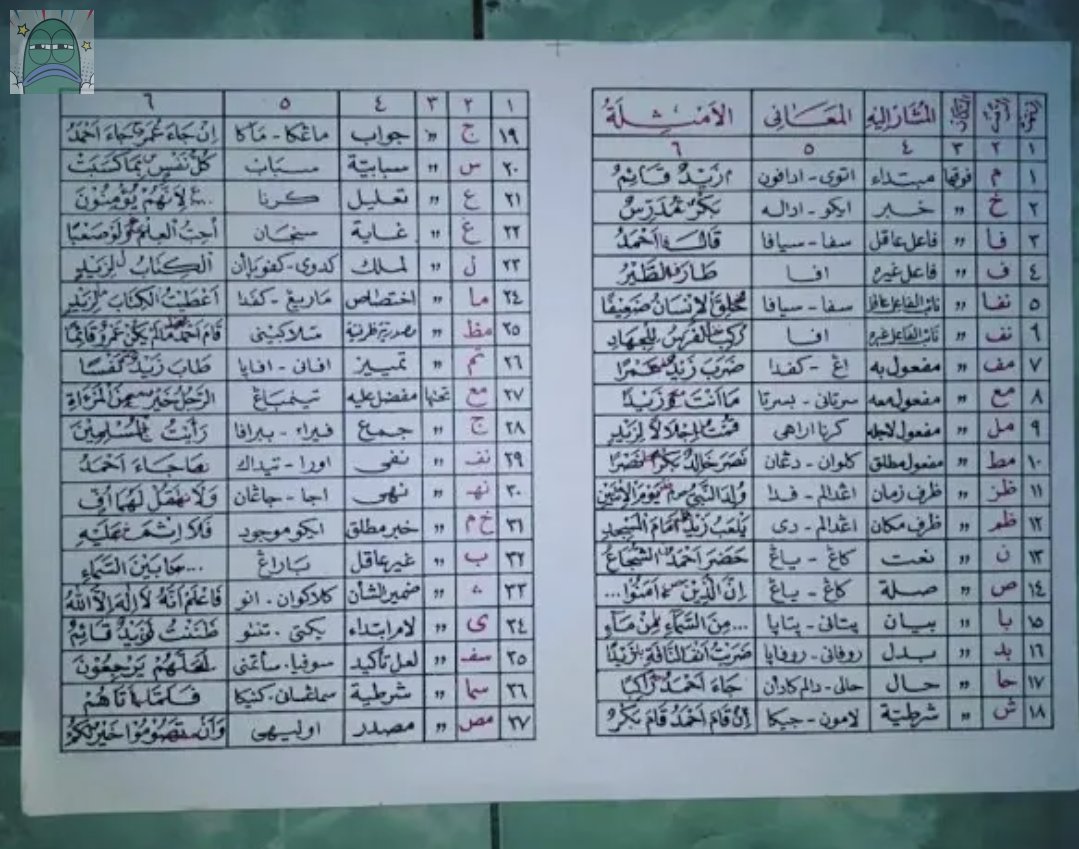 المشار إليه المعاني الأمثلة
١ ٢ ٣ ٤ ٥ ٦
١ م فوقها مبتداء اتوى - ادافون زَيْدٌ قَائِمٌ
٢ خ " خبر ايكو - اداله بَكْرٌ مُدَرِّسٌ
٣ فا " فاعل عاقل سفا - سيافا قَالَ أَحْمَدُ
٤ ف " فاعل غيره افا طَارَ الطَّيْرُ
٥ نفا " نائب الفاعل عاقل سفا - سيافا خُلِقَ الْإِنْسَانُ ضَعِيْفًا
٦ نف " نائب الفاعل غيره افا رُكِبَ الْفَرَسُ لِلْجِهَادِ
٧ مف " مفعول به اڠ - كفدا ضَرَبَ زَيْدٌ عَمْرًا
٨ مع " مفعول معه سرتاني - بسرتا مَا أَنْتَ وَزَيْدًا
٩ مل " مفعول لاجله كرنا اراهى قُمْتُ إِجْلَالًا لِزَيْدٍ
١٠ مط " مفعول مطلق كلوان - دڠان نَصَرَ خَالِدٌ بَكْرًا نَصْرًا
١١ ظز " ظرف زمان اڠدالم - فدا وُلِدَ النَّبِيُّ يَوْمَ الْإِثْنَيْنِ
١٢ ظم " ظرف مكان اڠدالم - دى يَلْعَبُ زَيْدٌ أَمَامَ الْمَسْجِدِ
١٣ ن " نعت كاڠ - ياڠ حَضَرَ أَحْمَدُ الشُّجَاعُ
١٤ ص " صلة كاڠ - ياڠ إِنَّ الَّذِيْنَ آمَنُوْا...
١٥ با " بيان پتانى - پتاپا ...مِنَ السَّمَاءِ مِنْ مَاءٍ
١٦ بد " بدل روفانى - روفاپا ضَرَبْتُ أَنْفَ النَّاقَةِ زَيْدًا
١٧ حا " حال حالى - دالم كادأن جَاءَ أَحْمَدُ رَاكِبًا
١٨ ش " شرطية لامون - جيكا إِنْ قَامَ أَحْمَدُ قَامَ بَكْرٌ
١ ٢ ٣ ٤ ٥ ٦
١٩ ج " جواب ماڠكا - مآكا إِنْ جَاءَ عُمَرُ جَاءَ أَحْمَدُ
٢٠ س " سبابية سباب كُلُّ نَفْسٍ بِمَا كَسَبَتْ
٢١ ع " تعليل كرنا ...لِأَنَّهُمْ يُؤْمِنُوْنَ
٢٢ غ " غاية سنجان أُحِبُّ الْعِلْمَ وَلَوْ صَعْبًا
٢٣ ل " لملك كدوى - كفوپاأن الْكِتَابُ لِزَيْدٍ
٢٤ ما " اختصاص ماريڠ - كفدا أَعْطَيْتُ الْكِتَابَ لِزَيْدٍ
٢٥ مظ " مصدرية ظرفية قَامَ أَحْمَدُ مَا لَمْ يَكُنْ عَمْرٌو قَائِمًا
٢٦ تم " تمييز افانى - افاپا طَابَ زَيْدٌ نَفْسًا
٢٧ مع تحتها مفضل عليه تيمباڠ الرَّجُلُ خَيْرٌ مِنَ الْمَرْأَةِ
٢٨ ج " جمع فيراء - ببرافا رَأَيْتُ الْمُسْلِمِيْنَ
٢٩ نف " نفى اورا - تيداك مَا جَاءَ أَحْمَدُ
٣٠ نهـ " نهى اجا - جاڠان وَلَا تَقُلْ لَهُمَا أُفٍّ
٣١ خ م " خبر مطلق ايكو موجود فَلَا إِثْمَ عَلَيْهِ
٣٢ ب " غير عاقل باراڠ ...مَا بَيْنَ السَّمَاءِ
٣٣ " ضمير الشأن كلاكوان - انو فَاعْلَمْ أَنَّهُ لَا إِلَهَ إِلَّا اللهُ
٣٤ ى " لام ابتداء يكتى - تنتو ظَنَنْتُ لَزَيْدٌ قَائِمٌ
٣٥ سف " لعل تأكيد سوفيا - لَعَلَّهُمْ يَرْجِعُوْنَ
٣٦ سما " شرطية فَلَمَّا أَتَاهُمْ
٣٧ مص " مصدر اوليهى وَأَنْ تَصُوْمُوْا خَيْرٌ لَكُمْ